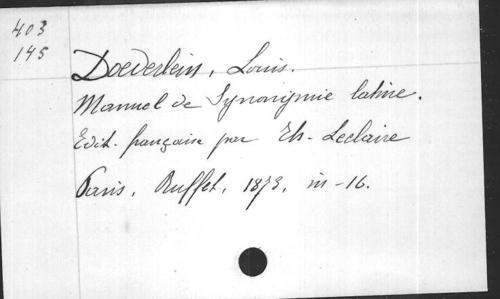 403
145
Doederlein, Louis.
Manuel de Synonymie latine.
Edit. française par Th. Leclaire
Paris, Ruffet, 1873, in-16.